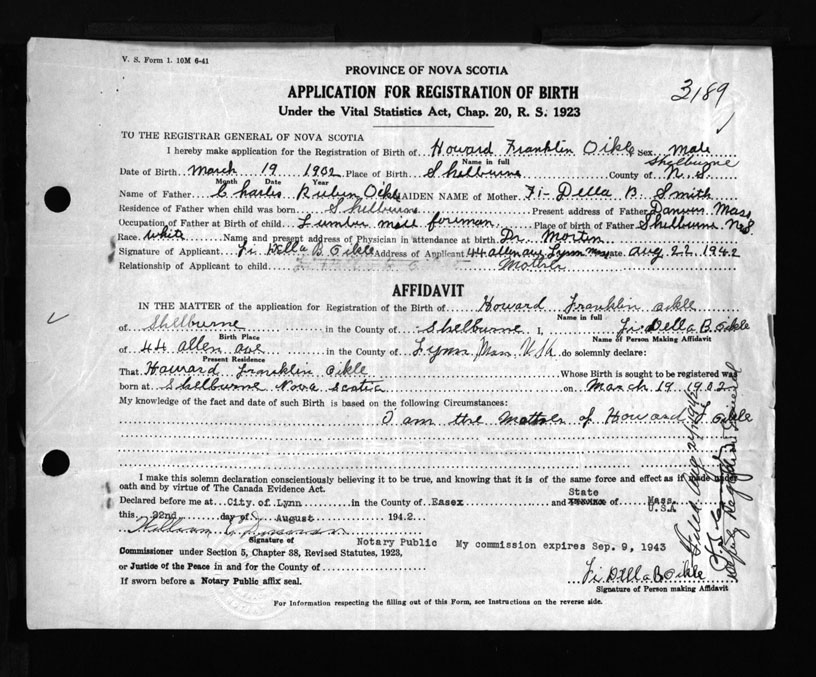 V. S. Form 1. 10M 6-41
PROVINCE OF NOVA SCOTIA
APPLICATION FOR REGISTRATION OF BIRTH
3189
Under the Vital Statistics Act, Chap. 20, R. S. 1923
TO THE REGISTRAR GENERAL OF NOVA SCOTIA
I hereby make application for the Registration of Birth of Howard Franklin Oikle Sex Male
Name in full
Shelburne
Date of Birth March 19 1902 Place of Birth Shelburne County of N. S
Month Date Year
Name of Father Charles Ruben Oikle MAIDEN NAME of Mother Fi-Della B. Smith
Residence of Father when child was born Shelburne Present address of Father Mass
Occupation of Father at Birth of child Lumber mill foreman Place of birth of Father Shelburne NS
Race white Name and present address of Physician in attendance at birth Dr. Mortin
Signature of Applicant Fi Della B. Oikle Address of Applicant 44 allen ave Lynn Mass Date Aug 22 1942
Relationship of Applicant to child Mother
AFFIDAVIT
IN THE MATTER of the application for Registration of the Birth of Howard Franklin Oikle
Name in full
of Shelburne in the County of Shelburne I, Fi Della B. Oikle
Birth Place Name of Person Making Affidavit
of 44 allen ave in the County of Lynn Mass U.S.A. do solemnly declare:
Present Residence
That Howard Franklin Oikle Whose Birth is sought to be registered was
born at Shelburne Nova Scotia on March 19 1902
My knowledge of the fact and date of such Birth is based on the following Circumstances:
I am the Mother of Howard F Oikle
I make this solemn declaration conscientiously believing it to be true, and knowing that it is of the same force and effect as if made under
oath and by virtue of The Canada Evidence Act.
State
Declared before me at City of Lynn in the County of Essex and of Mass.
U.S.A
this 22nd day of August 1942
William
Signature of Notary Public My commission expires Sep. 9, 1943
Commissioner under Section 5, Chapter 38, Revised Statutes, 1923,
or Justice of the Peace in and for the County of
Fi Della B. Oikle
If sworn before a Notary Public affix seal.
Signature of Person making Affidavit
For Information respecting the filling out of this Form, see Instructions on the reverse side.
Filed Aug 24 1942
Deputy Registrar General